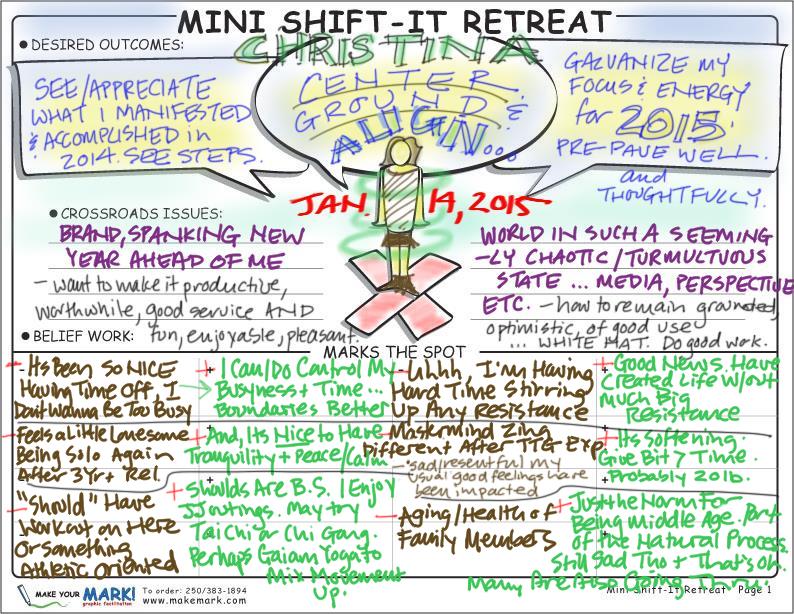 MINI SHIFT-IT RETREAT
CHRISTINA
DESIRED OUTCOMES:
SEE/APPRECIATE
WHAT I MANIFESTED
& ACCOMPLISHED in
2014. SEE STEPS.
CENTER
GROUND &
ALIGN...
GALVANIZE MY
FOCUS & ENERGY
for 2015.
PRE-PAVE WELL.
and
THOUGHTFULLY.
JAN. 14, 2015
CROSSROADS ISSUES:
BRAND, SPANKING NEW
YEAR AHEAD OF ME
- want to make it productive,
worthwhile, good service AND
fun, enjoyable, pleasant.
WORLD IN SUCH A SEEMING
-LY CHAOTIC/TURMULTUOUS
STATE ... MEDIA, PERSPECTIVE
ETC. - how to remain grounded,
optimistic, of good use
... WHITE HAT. Do good work.
BELIEF WORK:
MARKS THE SPOT
- Its Been So NICE
Having Time Off, I
Dont Wanna Be Too Busy
+ I Can/Do Control My
Busyness + Time...
Boundaries Better
- Uhhh, I'm Having
Hard Time Stirring
Up Any Resistance
+ Good News. Have
Created Life W/out
Much Big
Resistance
- Feels a Little Lonesome
Being Solo Again
After 3 Yr+ Rel.
+ And, Its Nice to Have
Tranquility + Peace/Calm
- Mastermind Zing
Different After TTG Exp
- sad/resentful my
usual good feelings have
been impacted
+ Its Softening.
Give Bit > Time.
+ Probably 2016.
- "Should" Have
Workout on Here
Or Something
Athletic Oriented
+ Shoulds Are B.S. I Enjoy
JJ outings. May try
Tai Chi or Chi Gang.
Perhaps Gaiam Yoga to
Mix Movement
Up.
- Aging/Health of
Family Members
+ Just the Norm For
Being Middle Age. Part
of the Natural Process.
Still Sad Tho + That's oh.
Many Are Also Going Thru.
MAKE YOUR MARK!
graphic facilitation
To order: 250/383-1894
www.makemark.com
Mini Shift-It Retreat Page 1